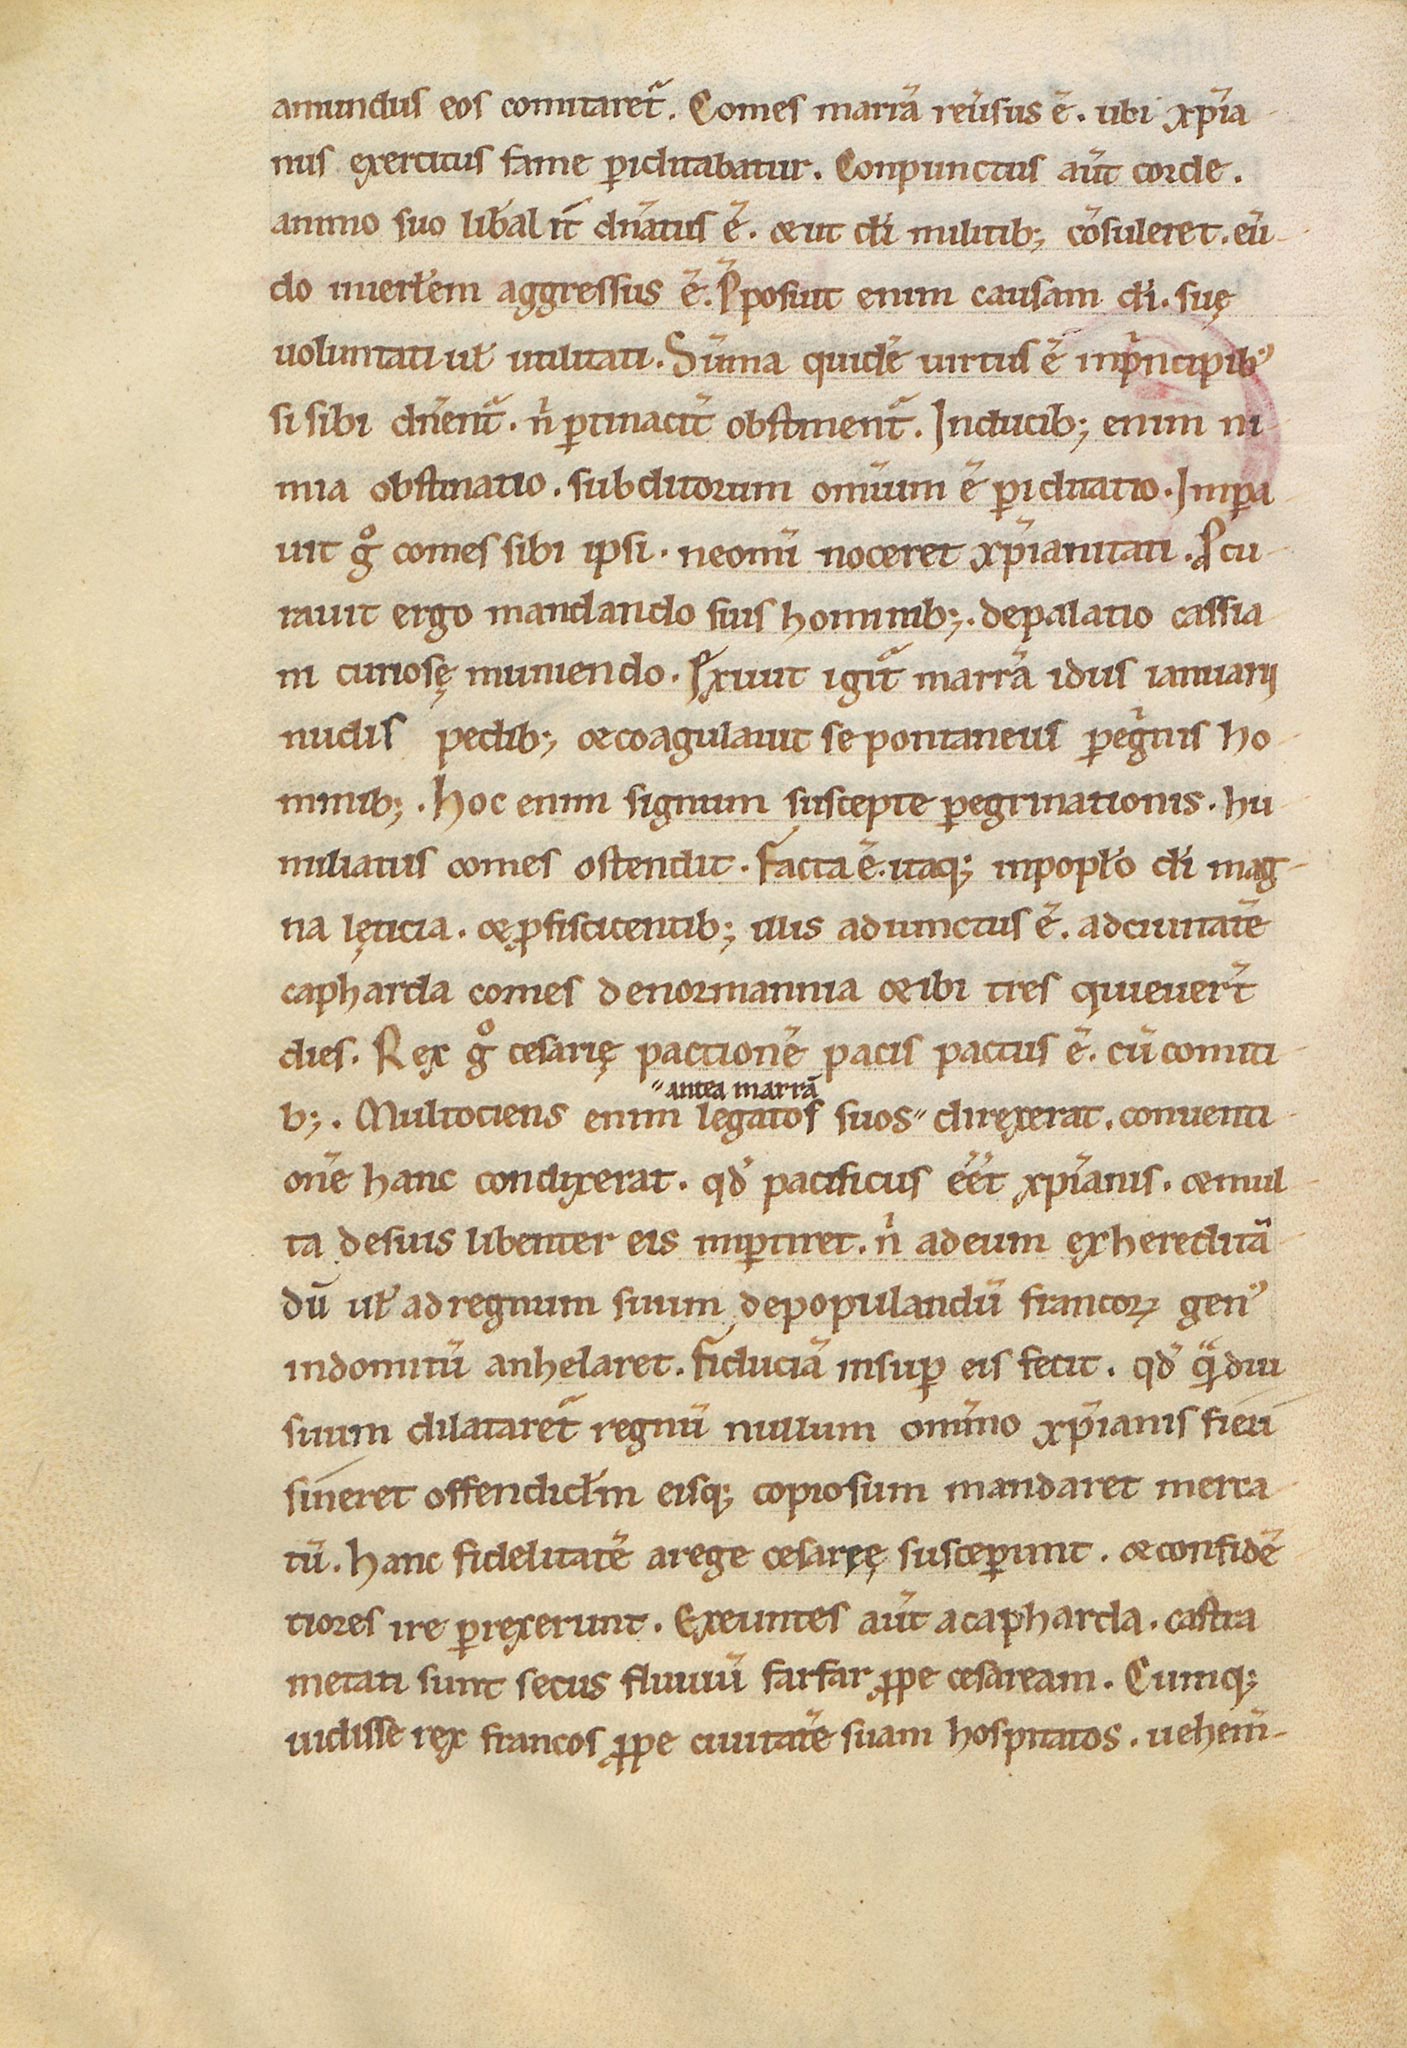 amundus eos comitaret᷑. Comes marrā reũsus ē. ubi xp̃ia
nus exercitus fame ꝑiclitabatur. Conpunctus aũt corde.
animo suo lib̃alit̃ dñatus ē. & ut dĩ militib; cōsuleret. eũ
do inert̃em aggressus ē. P̃posuit enim causam dĩ. suę
uoluntati uł utilitati. Sũma quidẽ uirtus ē inpͥncipibꝰ
si sibi dñent᷑. ñ ꝑtinacit̃ obstinent᷑. Inducib; enim ni
mia obstinatio. subditorum omĩum ē ꝑiclitatio. Imꝑa
uit gͦ comes sibi ipsi. ne omĩ noceret xp̃ianitati. Ꝓcu
rauit ergo mandando suis hominib;. de palatio cassia
ni curiosę muniendo. Exiuit igit᷑ marrā idus ianuarii
nudis pedib; & coagulauit se pontaneus ꝑegͥnis ho
minib;. Hoc enim signum suscepte ꝑegrinationis. hu
miliatus comes ostendit. Facta ē. itaq; in popł̃o dĩ mag
na lęticia. & ꝓfiscitentib; illis adiunctus ē. ad ciuitatē
capharda comes de normannia & ibi tres quieuer̃t
dies. Rex gͦ cesarię pactionē pacis pactus ē. cũ comiti
b;. Multociens enim legatos suos˶ direxerat. conuenti
˶antea marrā
onē hanc condixerat. qđ pacificus ēēt xp̃ianis. & mul
ta de suis libenter eis imꝑtiret. ñ ad eum exhereditā
dũ uł ad regnum suum depopulandũ francoꝝ genꝰ
indomitũ anhelaret. Fiduciā insuꝑ eis fecit. qđ qͣ diu
suum dilataret᷑ regnũ nullum omĩno xp̃ianis fieri
sineret offendicł̃m eisq; copiosum mandaret merca
tũ. Hanc fidelitatē a rege cesaręę susceꝑunt. & confidē
tiores ire ꝑrexerunt. Exeuntes aũt a capharda. castra
metati sunt secus fluuiũ farfar ꝓpe cesaream. Cumq;
uidisse rex francos ꝓpe ciuitatē suam hospitatos. uehem̃